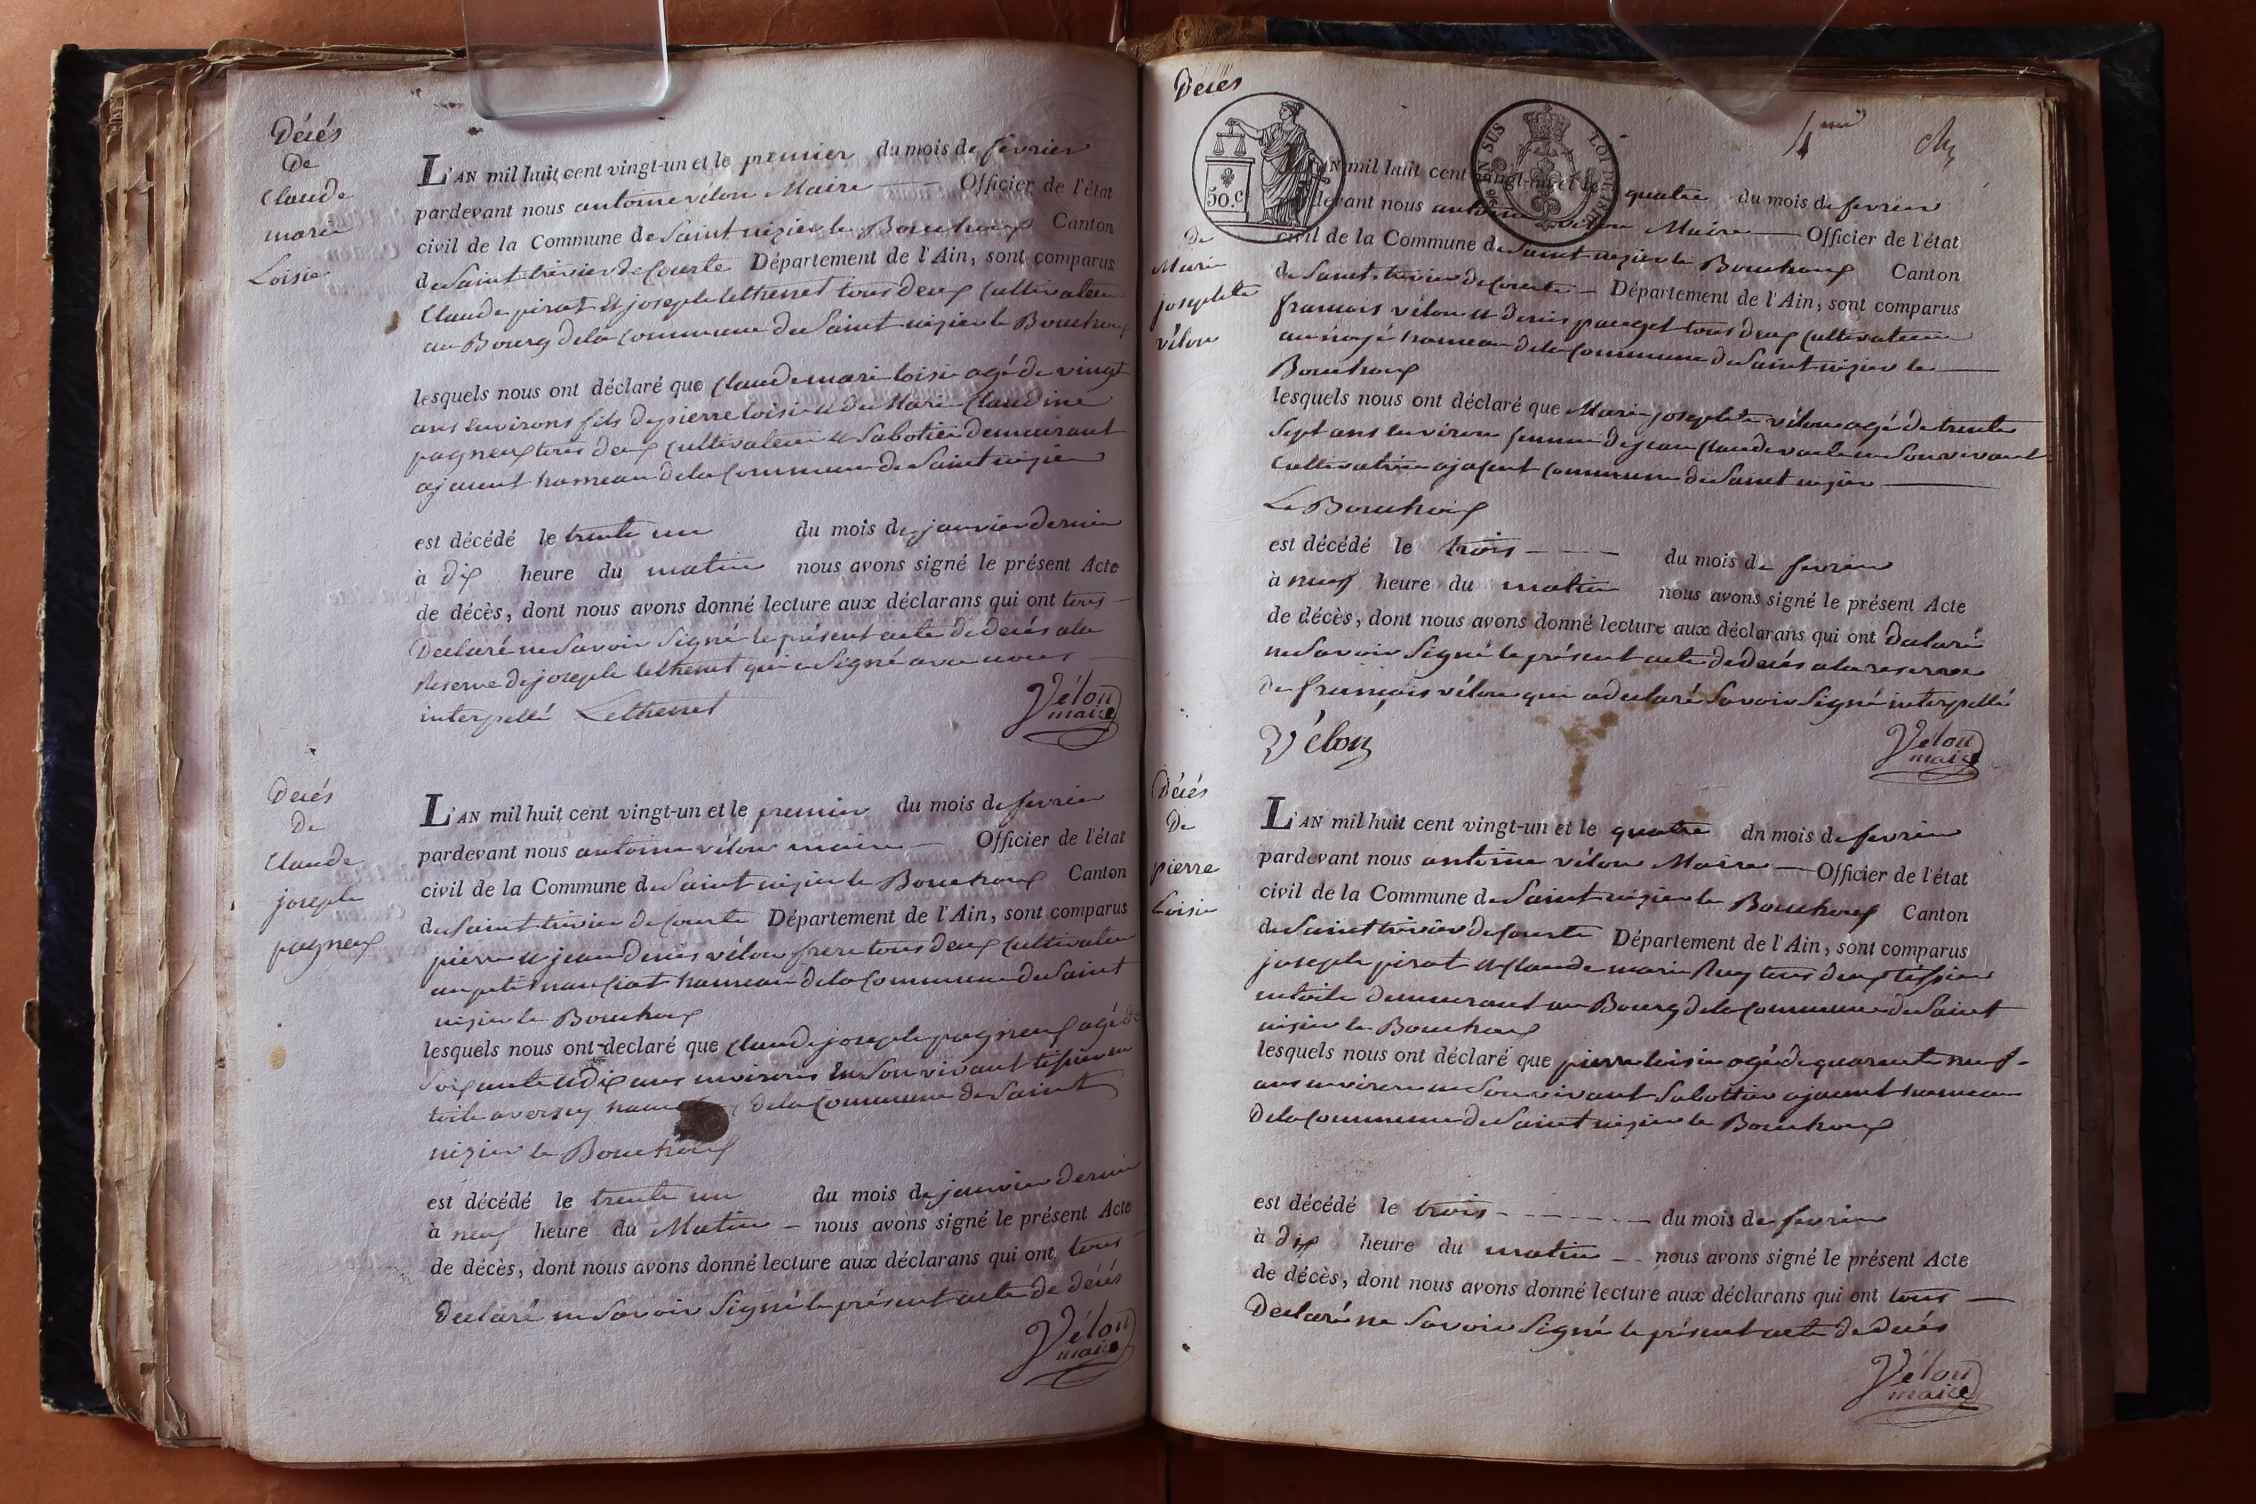 Décés
De
Claude
marie
Loisie
L'AN mil huit cent vingt-un et le premier du mois de fevrier
pardevant nous antoine vélon Maire Officier de l'état
civil de la Commune de Saint nizier le Bouchoux Canton
de Saint trivier de Courte Département de l'Ain, sont comparus
Claude pirat et joseph lethenet tous deux Cultivateur
au Bourg dela commune de Saint nizier le Bouchoux
lesquels nous ont déclaré que Claude marie loisie agé de vingt
ans environs fils de pierre loisie et de Marie Claudine
pagneux tous deux cultivateur et Sabotier demeurant
ajacent hameau dela Commune de Saint nizier
est décédé le trente un du mois de janvier dernier
à dix heure du matin nous avons signé le présent Acte
de décès, dont nous avons donné lecture aux déclarans qui ont tous
Declaré ne Savoir Signé le présent acte de decés ala
Reserve de joseph lethenet qui a Signé avec nous
interpellé Lethenet
Vélon
maire
Decés
De
Claude
joseph
pagneux
L'AN mil huit cent vingt-un et le premier du mois de fevrier
pardevant nous antoine vélon maire Officier de l'état
civil de la Commune de Saint nizier le Bouchoux Canton
de Saint trivier de Courte Département de l'Ain, sont comparus
pierre et jean denis vélon frere tous deux Cultivateur
au petit hameau dela Commune de Saint
nizier le Bouchoux
lesquels nous ont declaré que Claude joseph pagneux agé de
Soixante et dix ans environs En Son vivant tissier en
toile a versey dela Commune de Saint
nizier le Bouchoux
est décédé le trente un du mois de janvier dernier
à neuf heure du Matin nous avons signé le présent Acte
de décès, dont nous avons donné lecture aux déclarans qui ont tous
Declaré ne Savoir Signé le présent acte de décés
Vélon
maire
Decés
4me
50. c
LOI DE 1816
De
Marie
josephte
vélon
L'AN mil huit cent vingt-un et le quatre du mois de fevrier
pardevant nous antoine vélon Maire Officier de l'état
civil de la Commune de Saint nizier le Bouchoux Canton
de Saint trivier de Courte Département de l'Ain, sont comparus
francois vélon et denis pauget tous deux Cultivateur
hameau dela Commune de Saint nizier le
Bouchoux
lesquels nous ont déclaré que Marie josephte vélon agé de trente
Sept ans environ femme de jean Claude en Son vivant
Cultivatrice ajacent commune de Saint nizier
Le Bouchoux
est décédé le trois du mois de fevrier
à neuf heure du matin nous avons signé le présent Acte
de décès, dont nous avons donné lecture aux déclarans qui ont Declaré
ne Savoir Signé le présent acte de decés ala reserve
De françois vélon qui a declaré Savoir Signé interpellé
Vélon
Vélon
maire
Décés
De
pierre
Loisie
L'AN mil huit cent vingt-un et le quatre dn mois de fevrier
pardevant nous antoine vélon Maire Officier de l'état
civil de la Commune de Saint nizier le Bouchoux Canton
de Saint trivier de Courte Département de l'Ain, sont comparus
joseph pirat et Claude marie Ruy tous deux tissier
en toile demeurant au Bourg dela Commune de Saint
nizier le Bouchoux
lesquels nous ont déclaré que pierre loisie agé de quarente neuf
ans environ en Son vivant Sabottier ajacent hameau
Dela Commune de Saint nizier le Bouchoux
est décédé le trois du mois de fevrier
à dix heure du matin nous avons signé le présent Acte
de décès, dont nous avons donné lecture aux déclarans qui ont tous
Declaré ne Savoir Signé le présent acte de decés
Vélon
maire